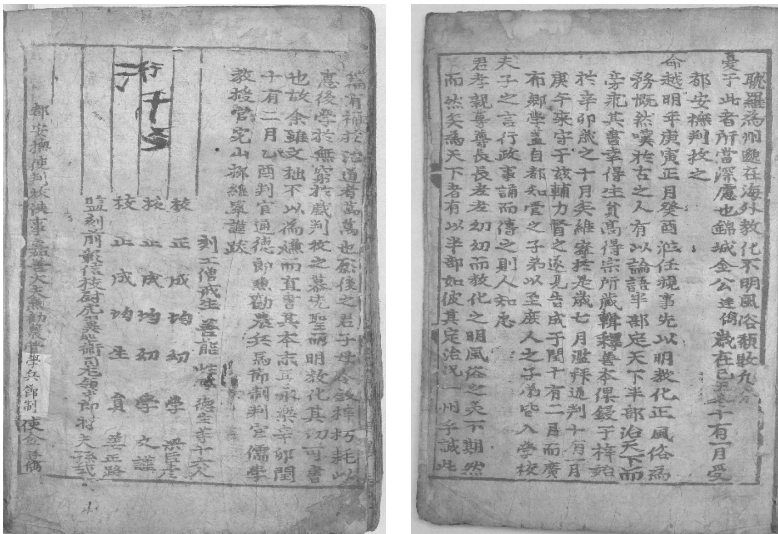 耽羅為州邈在海外教化不明風俗頹敗九
憂于此者所當深慮也錦城金公逹儁歲在己丑冬十有一月受
都安撫判牧之
命越明年庚寅正月癸酉涖任視事先以明教化正風俗為
務慨然嘆於古之人有以論語半部定天下半部治天下而
旁求其書幸得生員高得宗所藏輯釋善本俱鋟于梓始
於辛卯歲之十月矣維寧於是歲七月濫拜通判十有一月
庚午來守于玆輔力督之遂見告成于閏十有二月而廣
布鄉學盖自都知管之子弟以至庶人之子弟皆入學校
夫子之言行政事誦而傳之則人知忠
君孝親尊尊長長老老幼幼而教化之明風俗之美不期然
而然矣為天下者有以半部如彼其定治況一州乎誠此
篇有補於治道者萬萬也庶後之君子毋令梓朽耗以
惠後學於無窮於戲判牧之慕先聖而明教化其功可書
也故余雖文拙不以為嫌而直書其本志耳永樂辛卯閏
十有二月乙酉判官通德郎兼勸農兵馬節制判官儒學
教授官完山維寧謹跋
刻工僧戒生善能德宝等十六人
校正成均幼學梁臣
校正成均幼學文謙
校正成均生員正路
監刻前彰信校尉虎翼衛領副將夫孫
都安撫使判牧使事嘉善大夫兼勸農管學兵節制使金逹儁
行